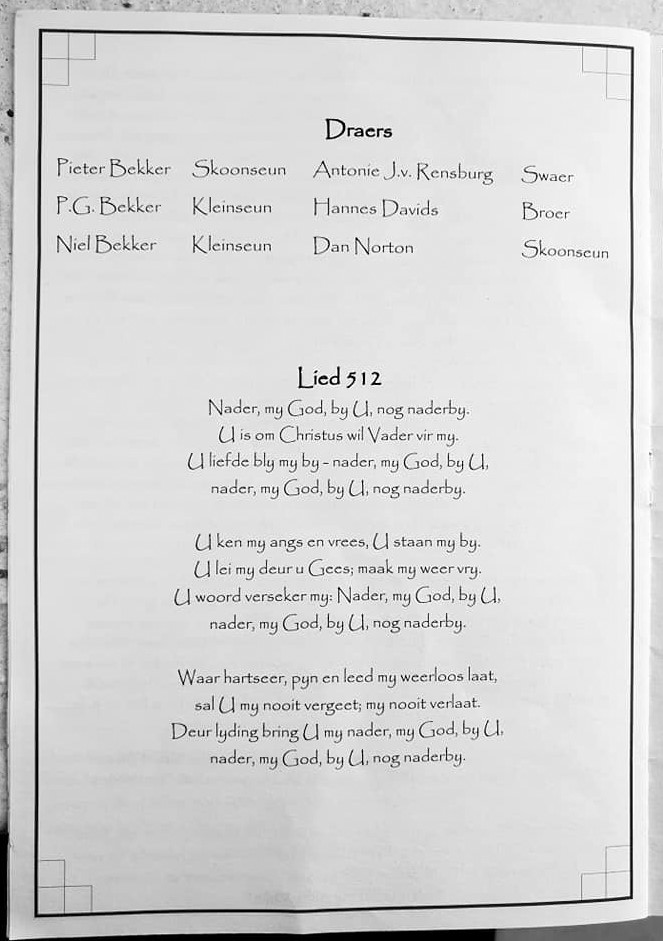 Draers
Pieter Bekker Skoonseun Antonie J.v. Rensburg Swaer
P.G. Bekker Kleinseun Hannes Davids Broer
Niel Bekker Kleinseun Dan Norton Skoonseun
Lied 512
Nader, my God, by U, nog naderby.
U is om Christus wil Vader vir my.
U liefde bly my by - nader, my God, by U,
nader, my God, by U, nog naderby.
U ken my angs en vrees, U staan my by.
U lei my deur u Gees; maak my weer vry.
U woord verseker my: Nader, my God, by U,
nader, my God, by U, nog naderby.
Waar hartseer, pyn en leed my weerloos laat,
sal U my nooit vergeet; my nooit verlaat.
Deur lyding bring U my nader, my God, by U,
nader, my God, by U, nog naderby.